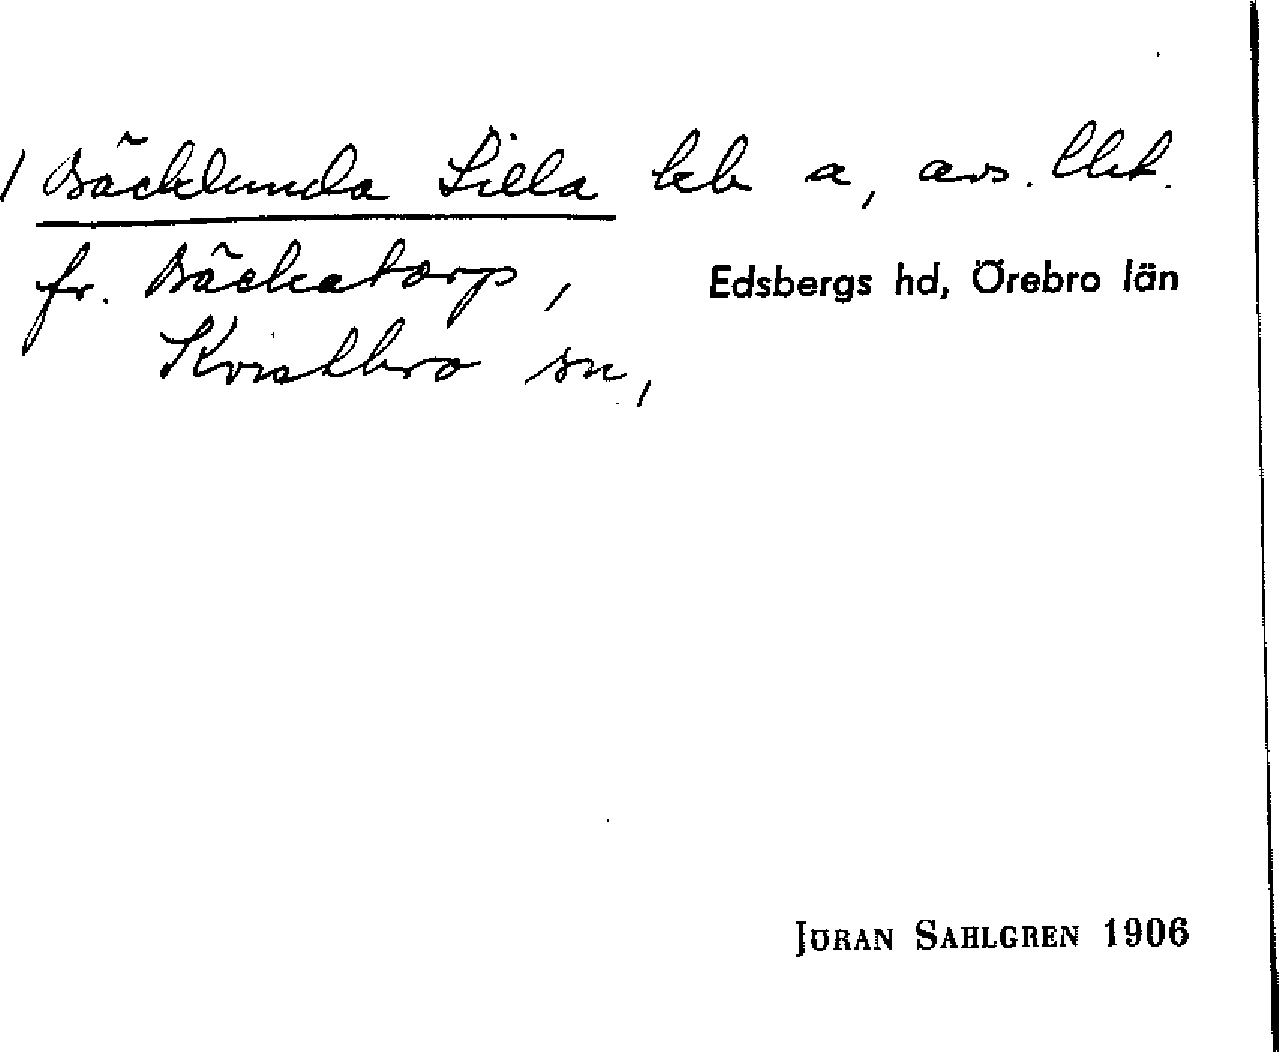 / Bäcklunda Lilla lcb a, avs. lht.
fr. Bäckatorp,
Edsbergs hd, Örebro län
Kvistbro sn,
JÖRAN SAHLGREN 1906